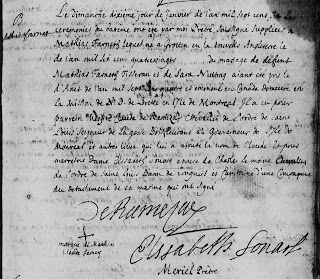 B
Mathias farnet
Le dimanche dixiéme jour de Janvier de l'an mil sept cens
ceremonies du bateme ont ete par moi Pretre soussigné supplées a
Mathias farnets lequel ne a Groton en la nouvelle Angleterre le
de l'an mil six cens quatrevingts du mariage de défunt
Mathias farnets Tisseran et de Sara Nutting aiant eté pris le
d'Aout de l'an mil sept cens quatre et emmené en Canada demeure en
la Mission de N. D. de Lorete en l'Ile de Montreal Il a eu pour
parrein Claude de Ramezay Chevalier de l'ordre de Saint
Louis Seigneur de Lagesse Boisfleurent Gouverneur de l'Ile de
Montreal et autres lieux qui lui a ajouté le nom de Claude Et pour
marreine Dame Elisabeth Souart epouse de Charles le moine Chevalier
de l'ordre de Saint Louis Baron de Longueil et Capitaine d'une Compagnie
du detachement de la marine qui ont signé
DeRamezay
+
marque de Mathias
Claude farnets
Elisabeth Souart
Meriel Prêtre